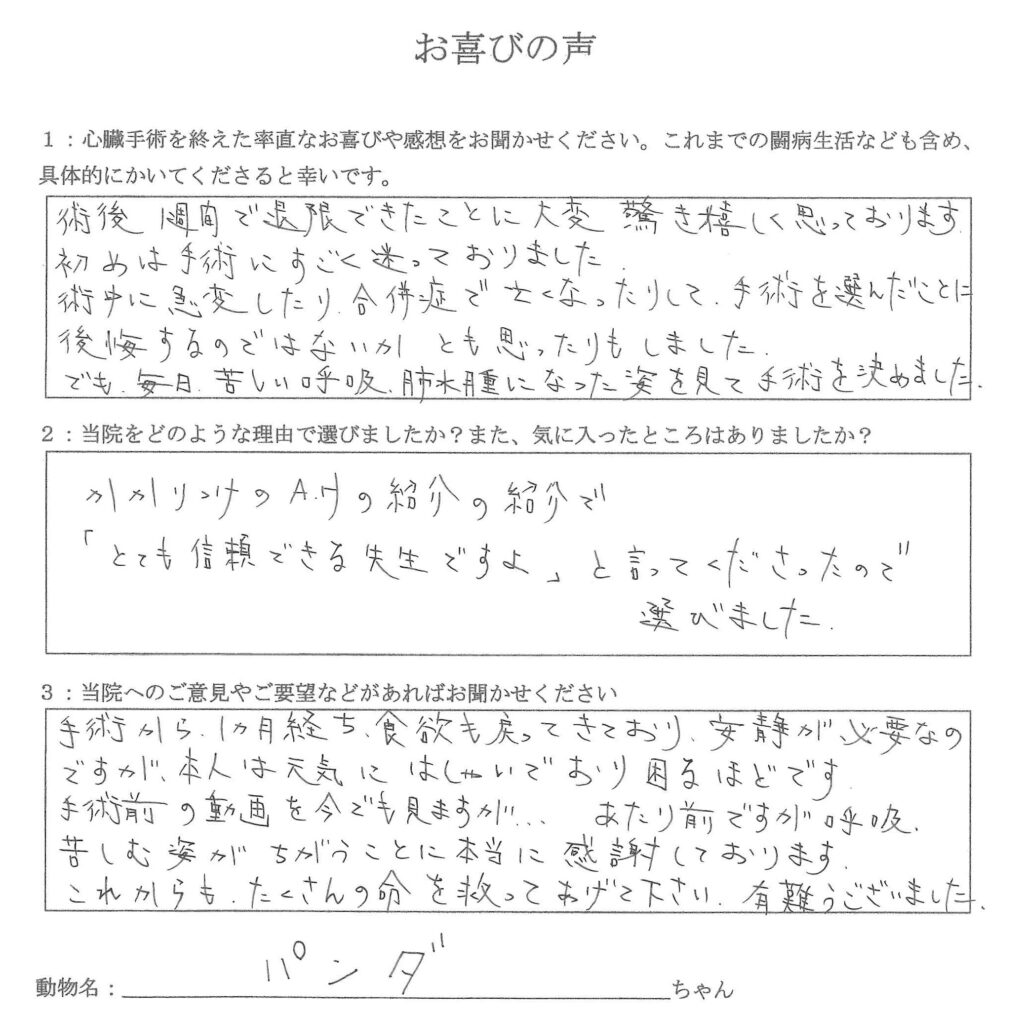 お喜びの声
１：心臓手術を終えた率直なお喜びや感想をお聞かせください。これまでの闘病生活なども含め、
具体的にかいてくださると幸いです。
術後 1週間で退院できたことに大変 驚き嬉しく思っております.
初めは手術にすごく迷っておりました.
術中に急変したり.合併症で亡くなったりして.手術を選んだことに
後悔するのではないか とも思ったりもしました.
でも.毎日.苦しい呼吸.肺水腫になった姿を見て手術を決めました.
２：当院をどのような理由で選びましたか？また、気に入ったところはありましたか？
かかりつけのA.Hの紹介の紹介で
「とても信頼できる先生ですよ」と言ってくださったので
選びました.
３：当院へのご意見やご要望などがあればお聞かせください
手術から.1ヵ月経ち.食欲も戻ってきており.安静が必要なの
ですが.本人は元気に はしゃいでおり困るほどです.
手術前の動画を今でも見ますが... あたり前ですが呼吸.
苦しむ姿が ちがうことに本当に感謝しております.
これからも.たくさんの命を救ってあげて下さい.有難うございました.
動物名：パンダ ちゃん